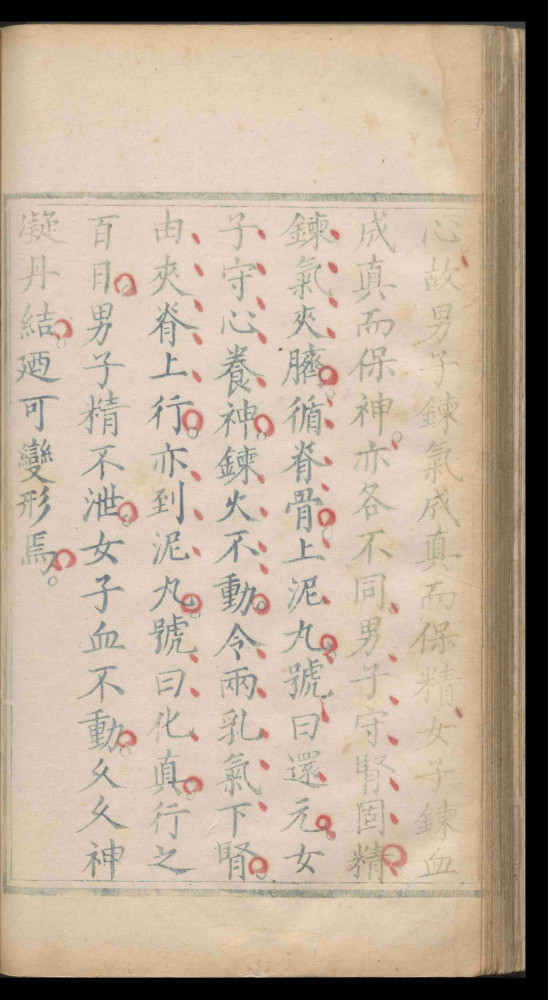 心故男子鍊氣成真而保精女子鍊血
成真而保神亦各不同男子守腎固精
鍊氣夾臍循脊骨上泥丸號曰還元女
子守心養神鍊火不動令兩乳氣下腎
由夾脊上行亦到泥丸號曰化真行之
百日男子精不泄女子血不動久久神
凝丹結廼可變形焉